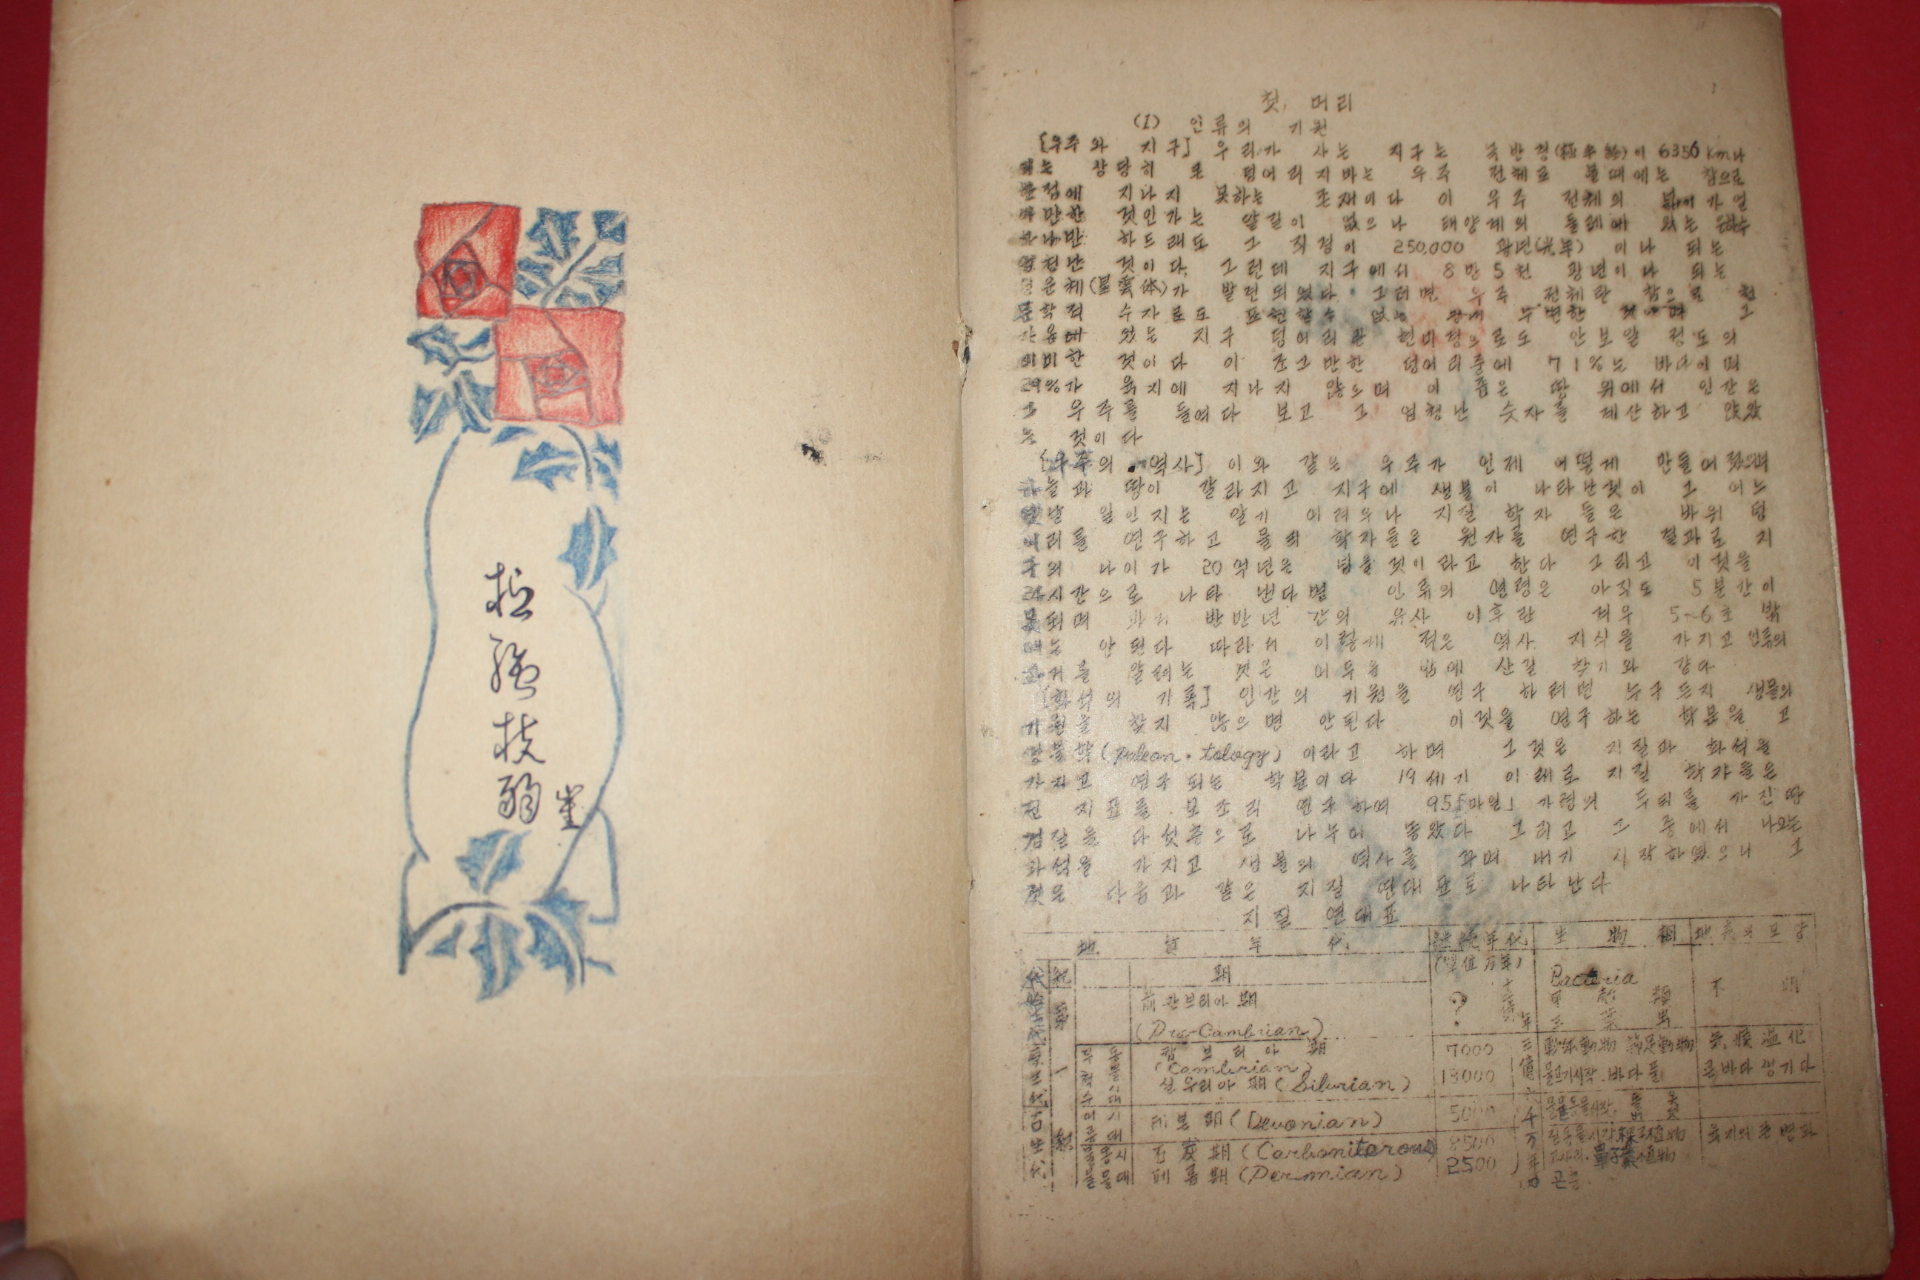 扶
弱
첫 머리
1
(1) 인류의 기원
[우주와 지구] 우리가 사는 지구는 극반경(極半徑)이 6356 Km나
되는 상당히 큰 덩어리지마는 우주 전체로 볼때에는 참으로
한점에 지나지 못하는 존재이다 이 우주 전체의 넓이가 얼
마만한 것인가는 알길이 없으나 태양계의 둘레에 있는 은하수
하나만 하드래도 그 직경이 250,000 광년(光年) 이나 되는
엄청난 것이다. 그런데 지구에서 8만 5천 광년이나 되는
성운체(星雲体)가 발견되었다. 그러면 우주 전체란 참으로 천
문학적 수자로도 표현할수 없는 무변한 것이며 그
가운데 있는 지구 덩어리란 현미경으로도 안보일 정도의
미비한 것이다 이 조그만한 덩어리중에 71%는 바다이며
29%가 육지에 지나지 않으며 이 좁은 땅 위에서 인간은
그 우주를 들여다 보고 그 엄청난 숫자를 계산하고 앉았
는 것이다
[우주의 역사] 이와 같은 우주가 언제 어떻게 만들어졌으며
하늘과 땅이 갈라지고 지구에 생물이 나타난것이 그 어느
옛날 일인지는 알기 어려우나 지질 학자 들은 바위 덩
어리를 연구하고 물리 학자들은 원자를 연구한 결과로 지
구의 나이가 20억년은 넘을것이라고 한다 그리고 이것을
24시간으로 나타 낸다면 인류의 연령은 아직도 5분간이
못되며 반만년 간의 유사 이후란 겨우 5~6초 밖
에는 안된다 따라서 이렇게 적은 역사 지식을 가지고 인류의
과거를 알려는 것은 어두운 밤에 산길 찾기와 같다
[화석의 기록] 인간의 기원을 연구 하려면 누구든지 생물의
기원을 찾지 않으면 안된다 이것을 연구하는 학문을 고
생물학(palean·tology) 이라고 하며 그것은 지질과 화석을
가지고 연구되는 학문이다 19세기 이래로 지질 학자들은
전 지표를 모조리 연구하여 95「마일」 가령의 두터를 가진 땅
껍질을 다섯층으로 나누어 놓았다 그리고 그 중에서 나오는
화석을 가지고 생물의 역사를 꾸며 내기 시작하였으니 그
것은 다음과 같은 지질 연대표로 나타난다
지질 연대표
地 質 年 代 生 物 相 地表의 모양
代 紀 期 (單位万年)
前캄브리아 期 ? Bacteria 不 明
(Pre-Cambrian)
캄브리아 期 7000
(Cambrian)
실우리아 期 (Silurian) 13000 물고기시작. 바다 큰바다 생기다
데본期 (Devonian) 5000
石炭期 (Carbonitorous) 8500
페름期 (Permian) 2500